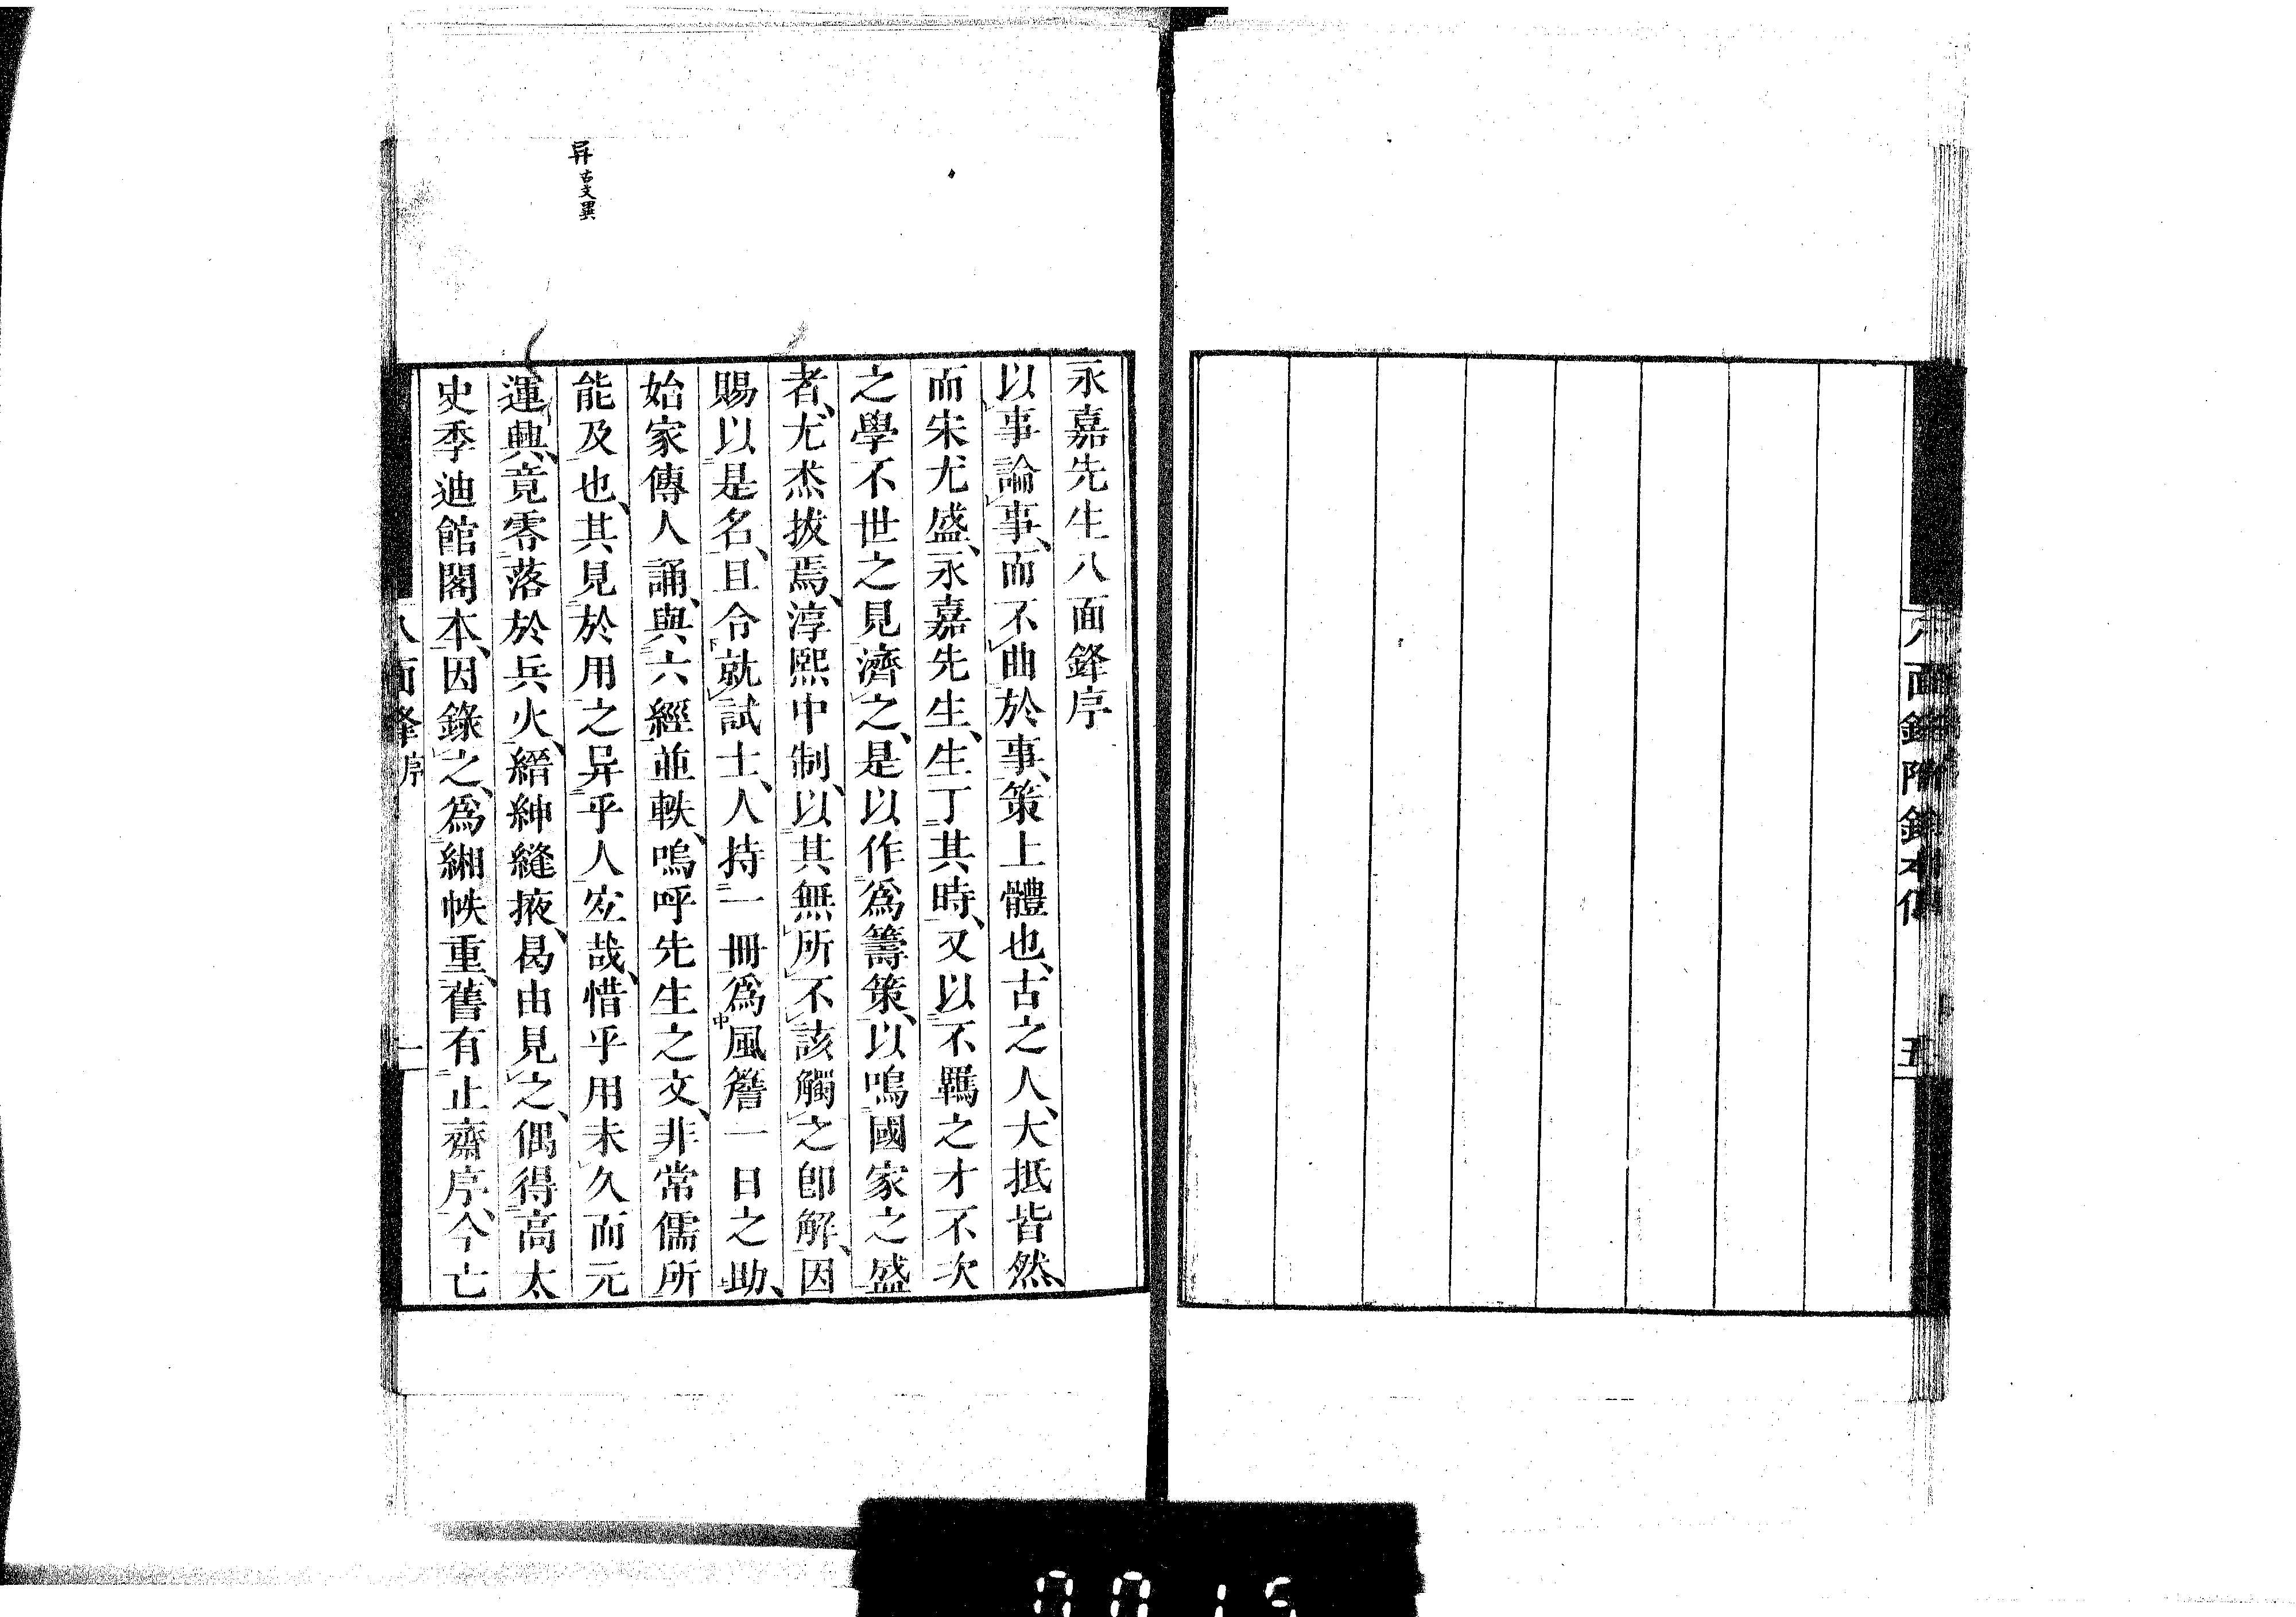 八面鋒附錄本傳
五
永嘉先生八面鋒序
以事論事、而不曲於事、策上體也、古之人、大抵皆然、
而宋尤盛、永嘉先生、生丁其時、又以不羈之才不次
之學不世之見濟之、是以作爲籌策、以鳴國家之盛
者、尤杰拔焉、淳熙中制、以其無所不該觸之卽解、因
賜以是名、且令就試士、人持一冊爲風簷一日之助、
始家傳人誦、與六經並軼、嗚呼先生之文、非常儒所
能及也、其見於用之异乎人宐哉、惜乎用未久而元
運興、竟零落於兵火、縉紳縫掖、曷由見之、偶得高太
史季迪館閣本、因錄之、爲緗帙重、舊有止齋序、今亡
异古文異
八面鋒序
一